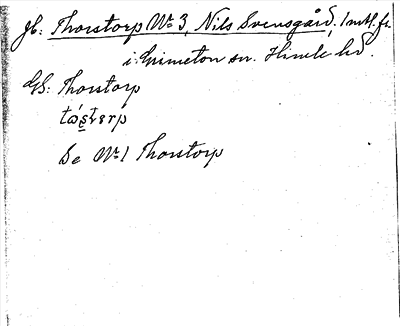 Jb: Thorstorp No 3, Nils Svensgård, 1 mtl. fr.
i Grimeton sn. Himle hd.
GS: Thorstorp
tὼṣtɛrp
Se No 1 Thorstorp